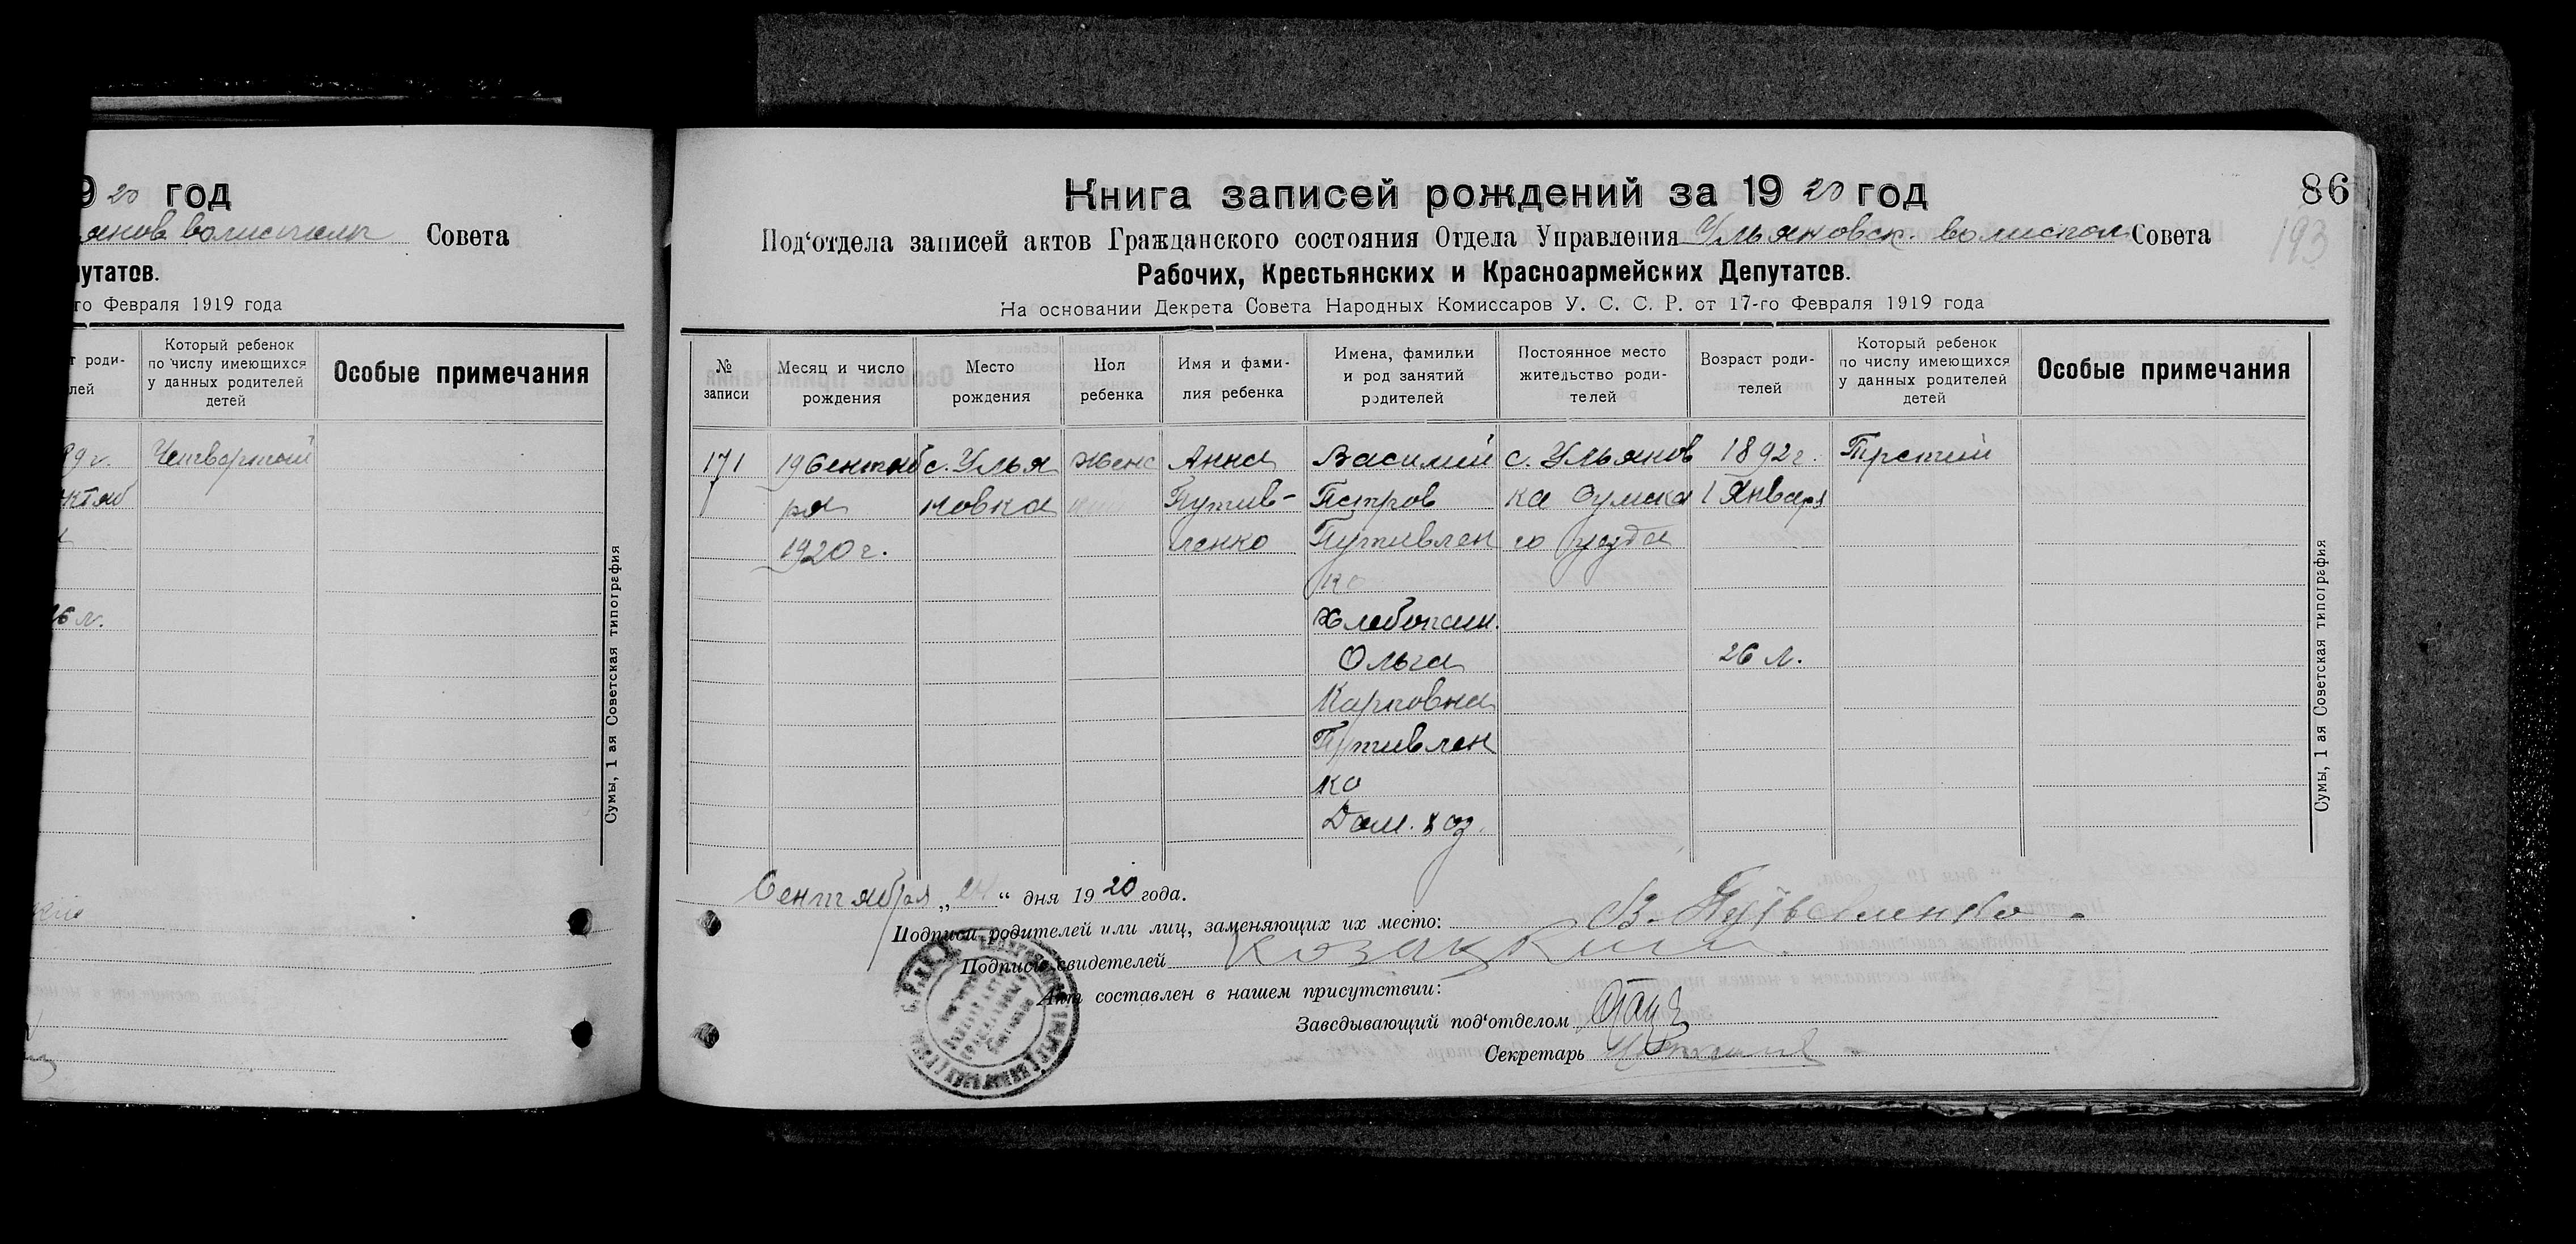 9 20 год
янов волисполк Совета
путатов.
го Февраля 1919 года
т роди-
лей
Который ребенок
по числу имеющихся
у данных родителей
детей
Особые примечания
89 г.
Четвертый
октяб
26 л.
Сумы, 1 ая Советская типография
Книга записей рождений за 19 20 год
86
193
Под‘отдела записей актов Гражданского состояния Отдела Управления Ульяновск. волиспол Совета
Рабочих, Крестьянских и Красноармейских Депутатов.
На основании Декрета Совета Народных Комиссаров У. С. С. Р. от 17-го Февраля 1919 года
№
записи
Месяц и число
рождения
Место
рождения
Пол
ребенка
Имя и фами-
лия ребенка
Имена, фамилии
и род занятий
родителей
Постоянное место
жительство роди-
телей
Возраст роди-
телей
Который ребенок
по числу имеющихся
у данных родителей
детей
Особые примечания
171
19 Сентяб
ря
1920 г.
с. Улья
новка
Женс
кий
Анна
Путив-
ленко
Василий
Петров
Путивлен
ко
Хлебопаш.
Ольга
Карповна
Путивлен
ко
Дом. хоз.
с. Ульянов
ка Сумска
го уезда
1892 г.
1 Января
26 л.
Третий
Сумы, 1 ая Советская типография
Сентября „ “ дня 19 20 года.
Подписи родителей или лиц, заменяющих их место: В. Путивленко
Подписи свидетелей
Акт составлен в нашем присутствии:
Заведывающий под‘отделом
Секретарь